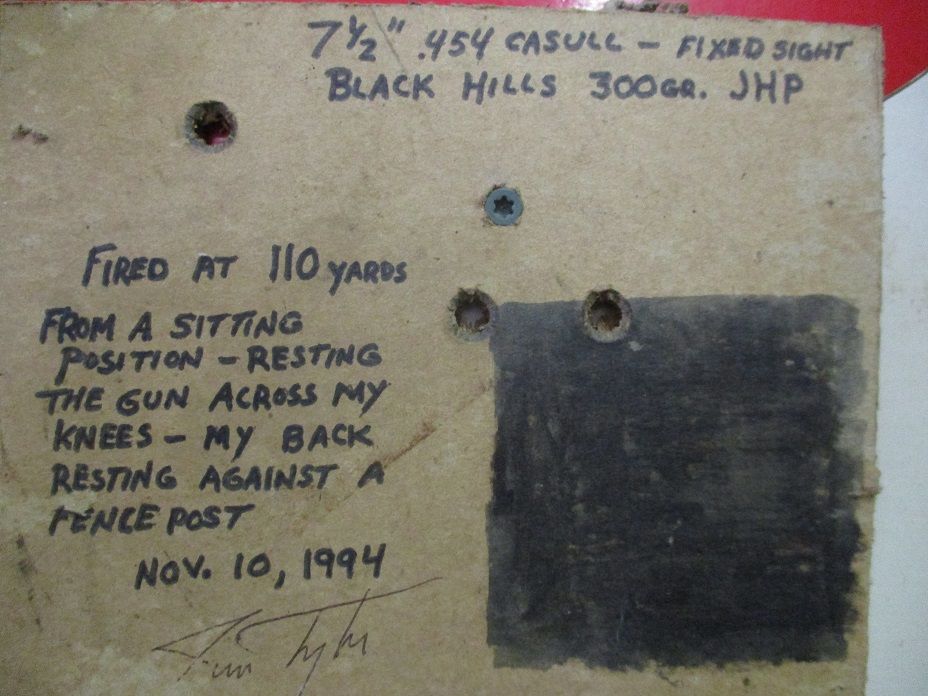 7 1/2" .454 CASULL - FIXED SIGHT
BLACK HILLS 300GR. JHP
FIRED AT 110 YARDS
FROM A SITTING
POSITION - RESTING
THE GUN ACROSS MY
KNEES - MY BACK
RESTING AGAINST A
FENCE POST
NOV. 10, 1994